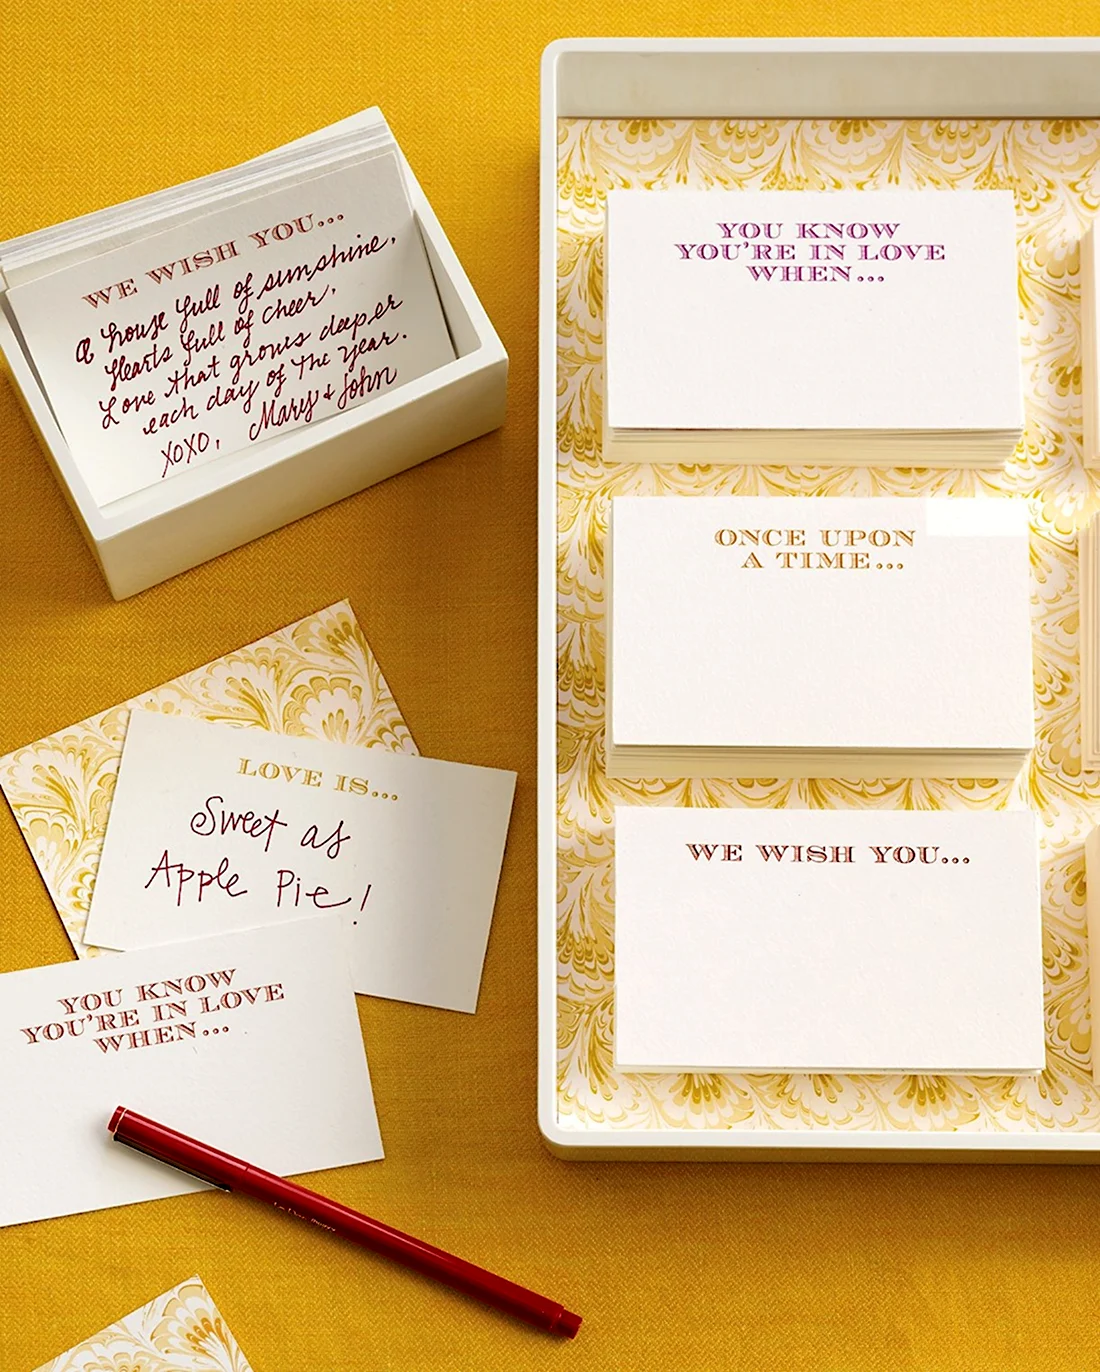 WE WISH YOU...
a house full of sunshine,
Hearts full of cheer,
Love that grows deeper
each day of the year.
XOXO, Mary & John
YOU KNOW
YOU'RE IN LOVE
WHEN...
ONCE UPON
A TIME...
WE WISH YOU...
LOVE IS...
Sweet as
Apple Pie!
YOU KNOW
YOU'RE IN LOVE
WHEN...